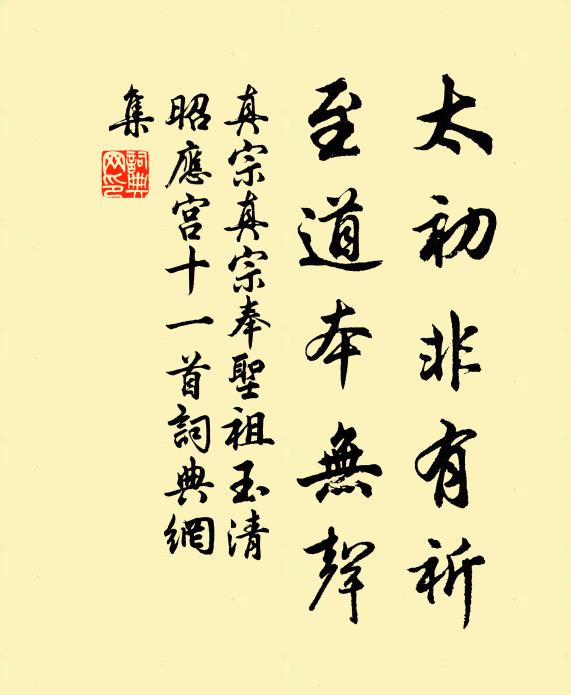 太初非有祈
至道本無聲
真宗真宗奉聖祖玉清
昭應宮十一首詞典網
集
詞典網印